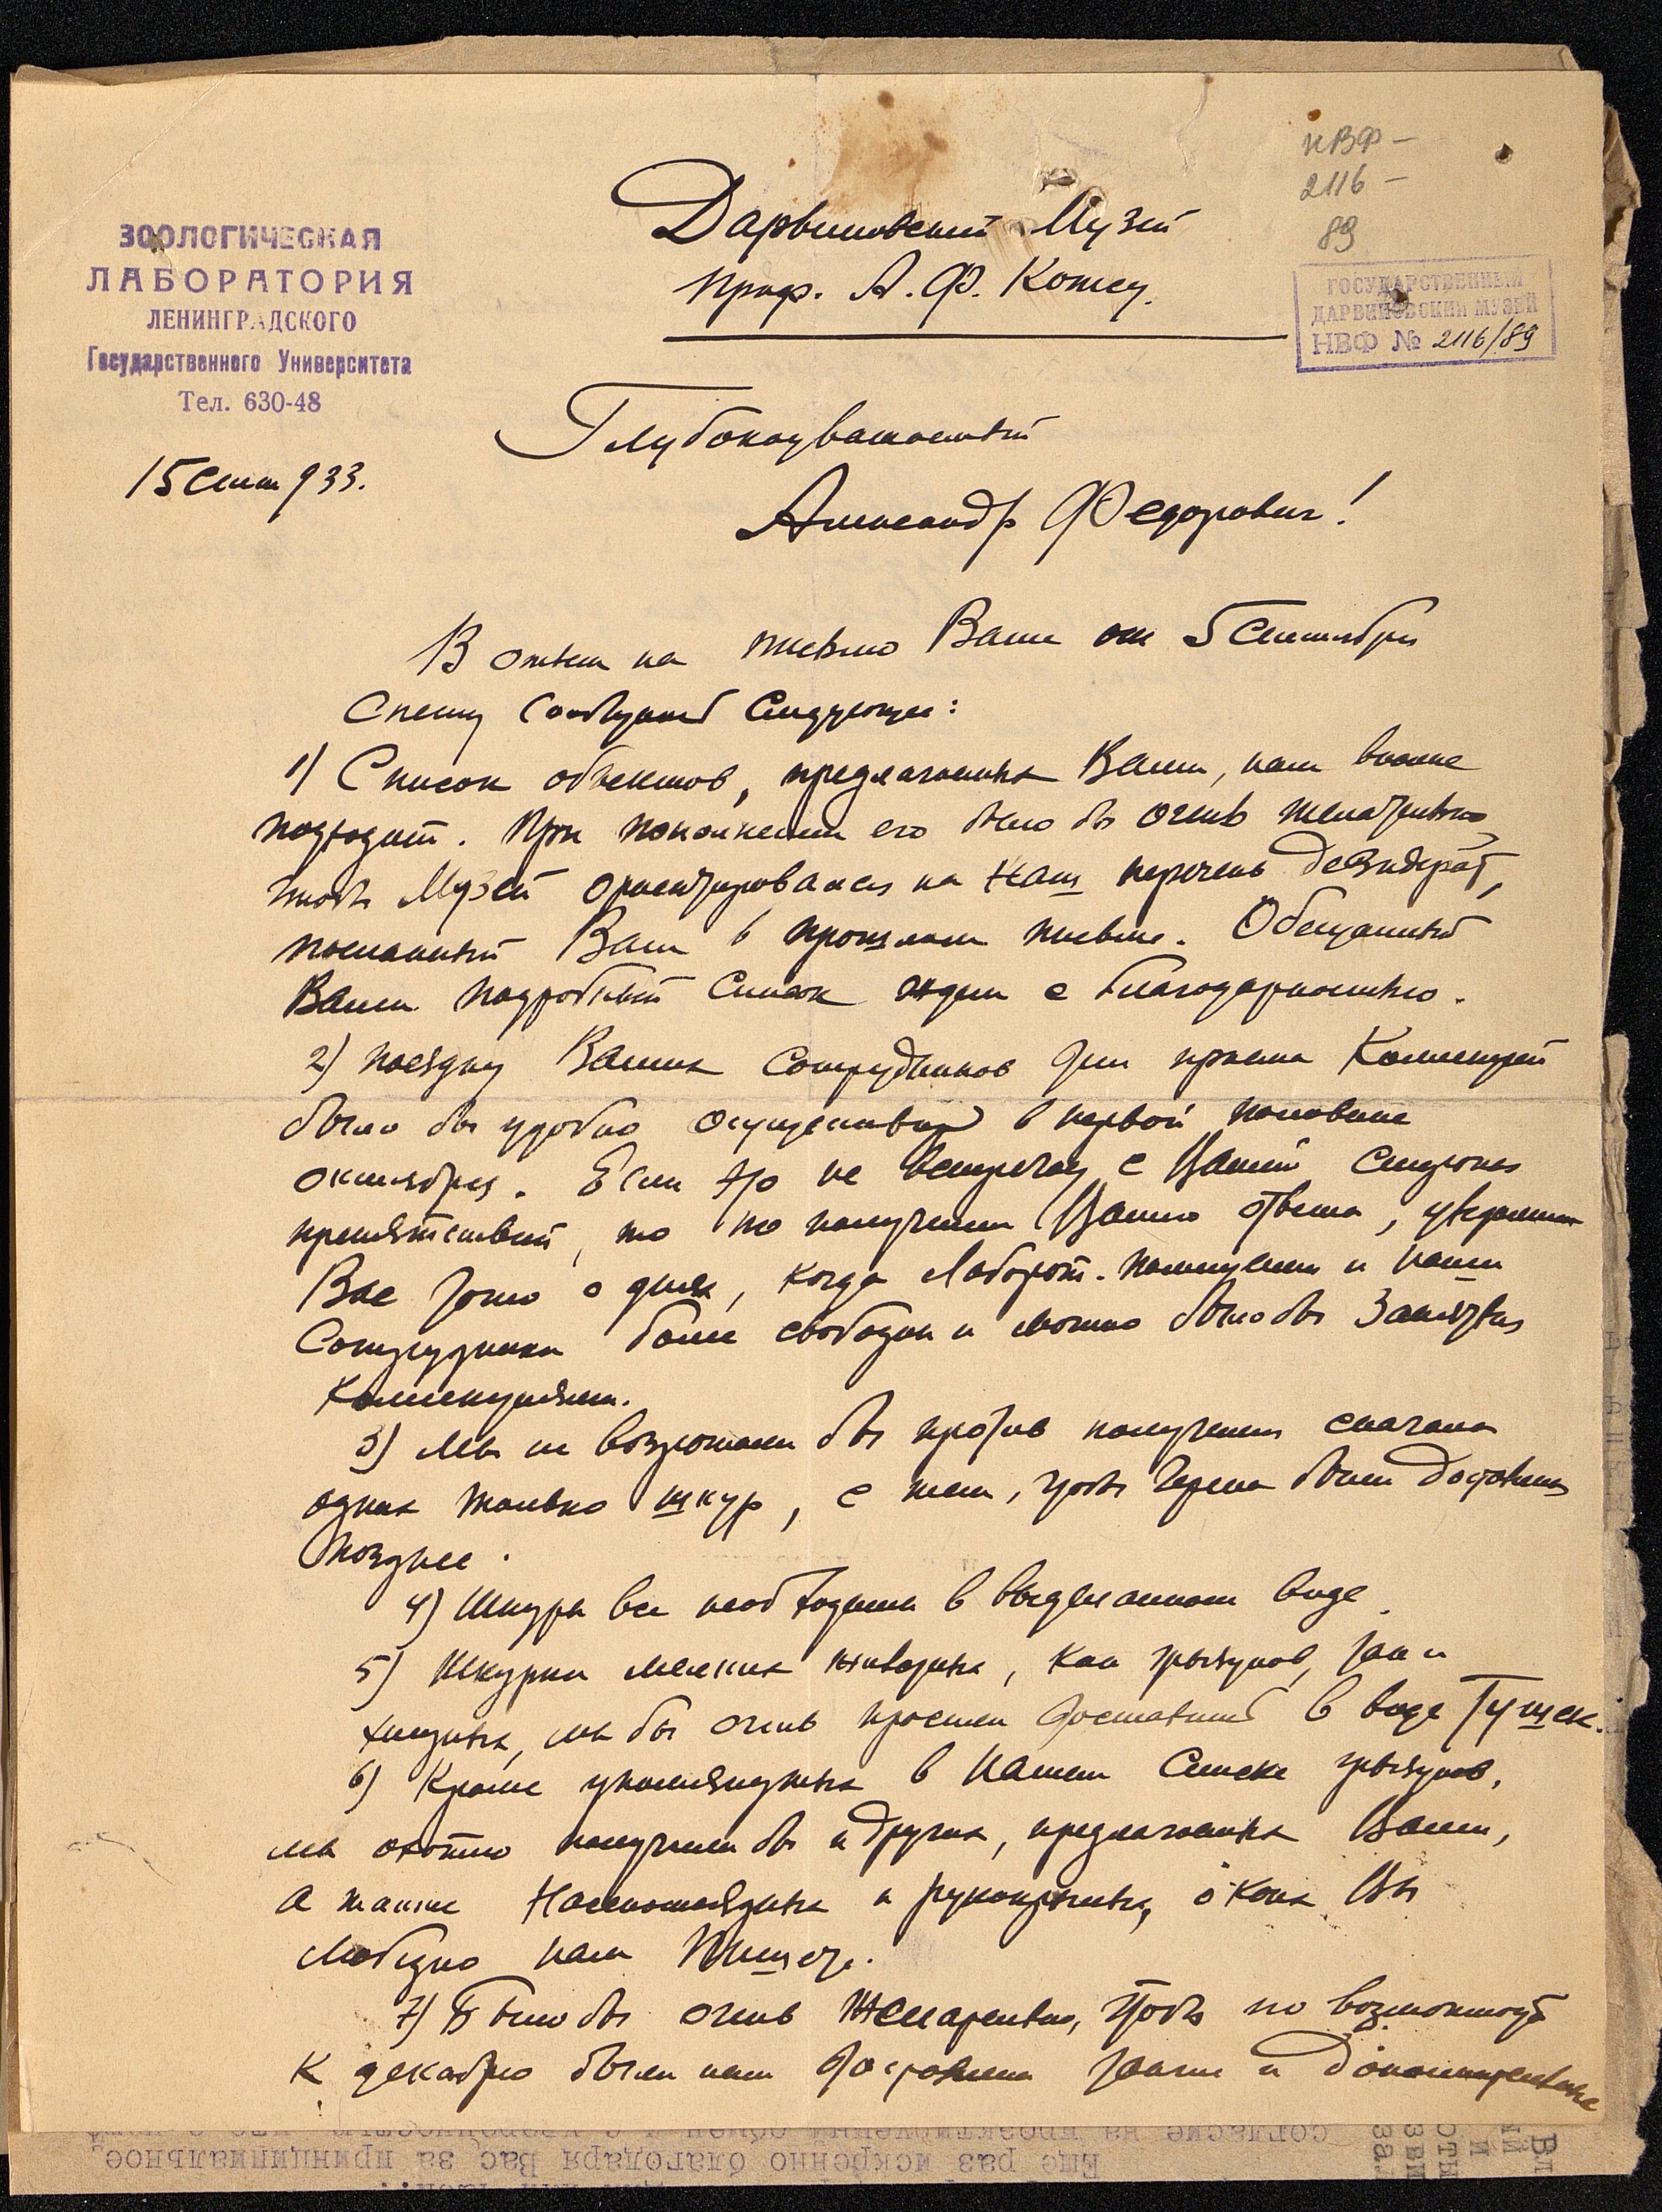 нВФ –
2116 –
89
ГОСУДАРСТВЕННЫЙ
ДАРВИНОВСКИЙ МУЗЕЙ
НВФ № 2116/89
ЗООЛОГИЧЕСКАЯ
ЛАБОРАТОРИЯ
ЛЕНИНГРАДСКОГО
Государственного Университета
Тел. 630-48
15 Сент 933.
Дарвиновский Музей
проф. А. Ф. Котсу.
Глубокоуважаемый
Александр Федорович!
В ответ на письмо Ваше от 5 Сентября
Спешу сообщить следующее:
1) Список объектов, предлагаемых Вами, нам вполне
подходит. При пополнении его было бы очень желательно
чтобы Музей ориентировался на наш перечень дезидерат,
посланный Вам в прошлом письме. Обещанный
Вами подробный список ждем с благодарностью.
2) Поездку Ваших сотрудников для приема коллекций
было бы удобно осуществить в первой половине
октября. Если это не встречает с Вашей стороны
препятствий, то по получении Вашего ответа, уведомим
Вас точно о днях, когда Лаборат. помещения и наши
сотрудники более свободны и можно было бы заняться
коллекциями.
3) Мы не возражали бы против получения сначала
одних только шкур, с тем, чтобы черепа были доставлены
позднее.
4) Шкуры все необходимы в выделанном виде.
5) Шкурки мелких животных, как грызунов, так и
хищных, мы бы очень просили доставить в виде тушек.
6) Кроме упоминаемых в нашем списке грызунов,
мы охотно получили бы и других, предлагаемых Вами,
а также насекомоядных и рукокрылых, о коих Вы
любезно нам пишете.
7) Было бы очень желательно, чтобы по возможности
к декабрю были нам доставлены также и дополнительные
Еще раз искренно благодаря Вас за принципиальное
согласие на